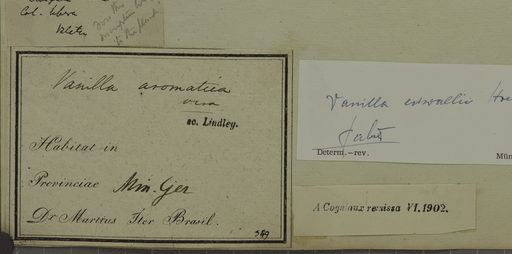 Col. libera
to the
Vanilla aromatica
vera
sc. Lindley.
Habitat in
Provinciae Min. Ger
Dr Martius Iter Brasil.
349
Vanilla edwallii Hoe
Determ.–rev.
Mün
A Cogniaux remissa VI. 1902.